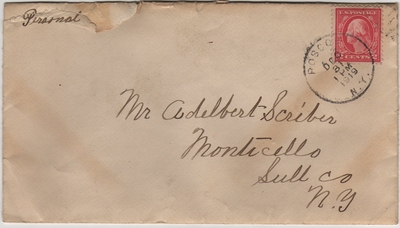 Personal
U.S. POSTAGE
2 CENTS 2
ROSCOE
N.Y.
Mr Adelbert Scriber
Monticello
Sull co
N.Y